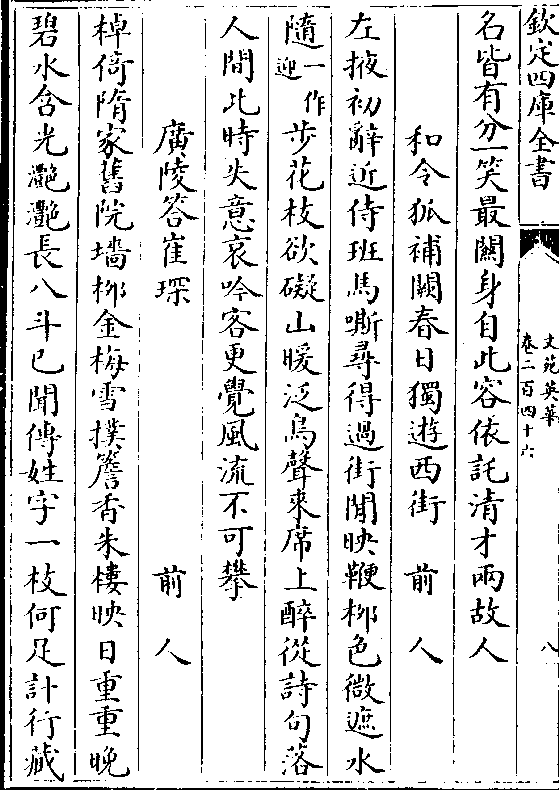 欽定四庫全書
文苑英華
卷二百四十六
八
名皆有分一笑最闗身自此容依託清才兩故人
和令狐補闕春日獨遊西街　前人
左掖初辭近侍班馬嘶尋得過街閒映鞭栁色微遮水
隨一作迎步花枝欲礙山暖泛鳥聲來席上醉從詩句落
人間此時失意哀吟客更覺風流不可攀
廣陵答崔琛　前人
棹倚隋家舊院墻栁金梅雪撲簷香朱樓映日重重晚
碧水含光灧灧長八斗已聞傳姓字一枝何足計行藏